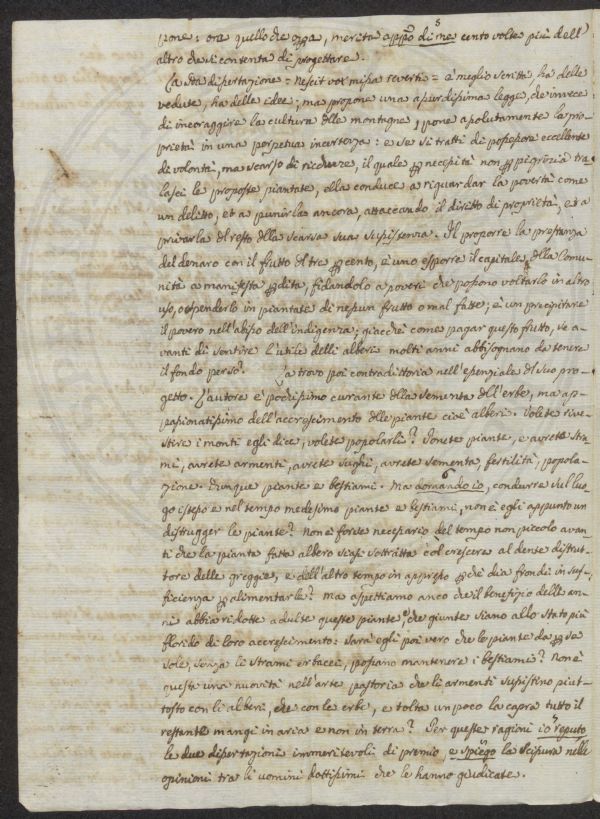 pone: ora quello che opera, merita app.o di me cento volte più dell'
altro che si contenta di progettare.
La 2da dissertazione = Nescit vox missa reverti = è meglio scritta ha delle
vedute, ha delle idee; ma propone una assurdissima legge, che invece
di incoraggire la cultura delle montagne, pone assolutamente la pro-
prietà in una perpetua incertezza: e se si tratti di possessore eccellente
di volontà, ma scarso di ricchezze, il quale per necessità non per pigrizia tra
lasci le proposte piantate, ella conduce a riguardar la povertà come
un delitto, et a punirla ancora, attaccando il diritto di proprietà, et a
privarla del resto della scarsa sua sussistenza. Il proporre la prestanza
del denaro con il frutto del tre per cento, è uno esporre il capitale della Comu-
nità a manifesta perdita, fidandolo a poveri che possono voltarlo in altro
uso, o spenderlo in piantate di nessun frutto o mal fatte; è un precipitare
il povero nell'abisso dell'indigenza; giacchè come pagar questo frutto, se a-
vanti di sentire l'utile delli alberi molti anni abbisognano da tenere
il fondo perso? La trovo poi contradittoria nell'essenziale del suo pro-
getto. L'autore è pochissimo curante della sementa dell'erbe, ma ap-
passionatissimo dell'accrescimento delle piante cioè alberi. Volete rive-
stire i monti egli dice, volete popolarli? Ponete piante, e avrete stra-
mi, avrete armenti, avrete sughi, avrete sementa, fertilità, popola-
zione. Dunque piante e bestiami. Ma domando io, condurre sul luo-
go istesso e nel tempo medesimo piante e bestiami, non è egli appunto un
distrugger le piante? Non è forse necessario del tempo non piccolo avan-
ti che la pianta fatta albero siasi sottratta col crescere al dente distrut-
tore delle greggie, e dell'altro tempo in appresso perchè dia frondi in suf-
ficienza per alimentarle? Ma aspettiamo anco che il benefizio delle an-
ni abbia ridotte adulte queste piante, che giunte siano allo stato più
florido di loro accrescimento: sarà egli poi vero che le piante da per se
sole, senza li strami erbacei, possano mantenere i bestiami? Non è
questa una nuovità nell'arte pastoria che li armenti sussistino piut-
tosto con li alberi, che con le erbe, e tolta un poco la capra tutto il
restante mangi in aria e non in terra? Per queste ragioni io reputo
le due dissertazioni immeritevoli di premio, e spiego la scissura nelle
opinioni tra li uomini dottissimi che le hanno giudicate.